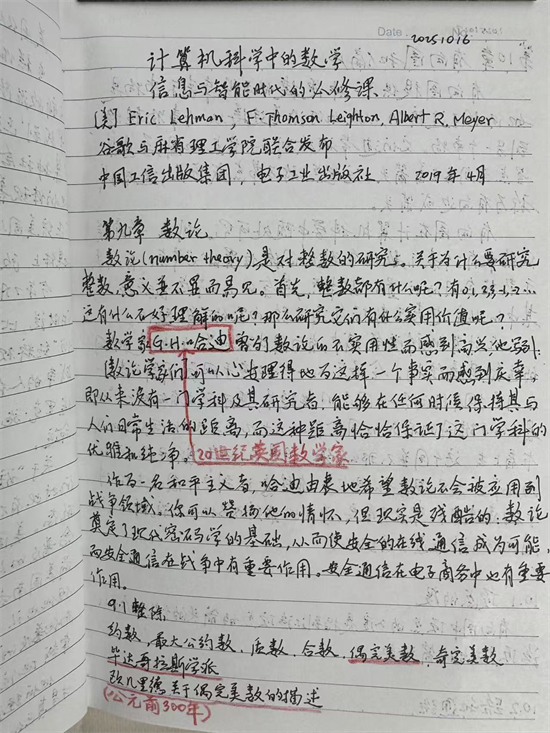 Date 20251016
计算机科学中的数学
信息与智能时代的必修课
[美] Eric Lehman, F. Thomson Leighton, Albert R. Meyer
谷歌与麻省理工学院联合发布
中国工信出版集团, 电子工业出版社 2019年4月
第九章 数论
数论(number theory)是对整数的研究。关于为什么要研究
整数,意义并不显而易见。首先,整数都有什么呢?有0,1,2,3,-1,-2…
这有什么不好理解的呢?那么研究它们有什么实用价值呢?
数学家G.H.哈迪 曾为数论的不实用性而感到高兴他写到:
[数论学家们]可以心安理得地为这样一个事实而感到庆幸,
即从来没有一门学科及其研究者,能够在任何时候保持其与
人们日常生活的距离,而这种距离恰恰保证了这门学科的
优雅和纯净。
20世纪英国数学家
作为一名和平主义者,哈迪由衷地希望数论不会被应用到
战争领域。你可以赞扬他的情怀,但现实是残酷的:数论
奠定了现代密码学的基础,从而使安全的在线通信成为可能,
而安全通信在战争中有重要作用。安全通信在电子商务中也有重要
作用。
9.1 整除
约数、最大公约数、质数、合数、偶完美数、奇完美数
毕达哥拉斯学派
欧几里德关于偶完美数的描述
(公元前300年)